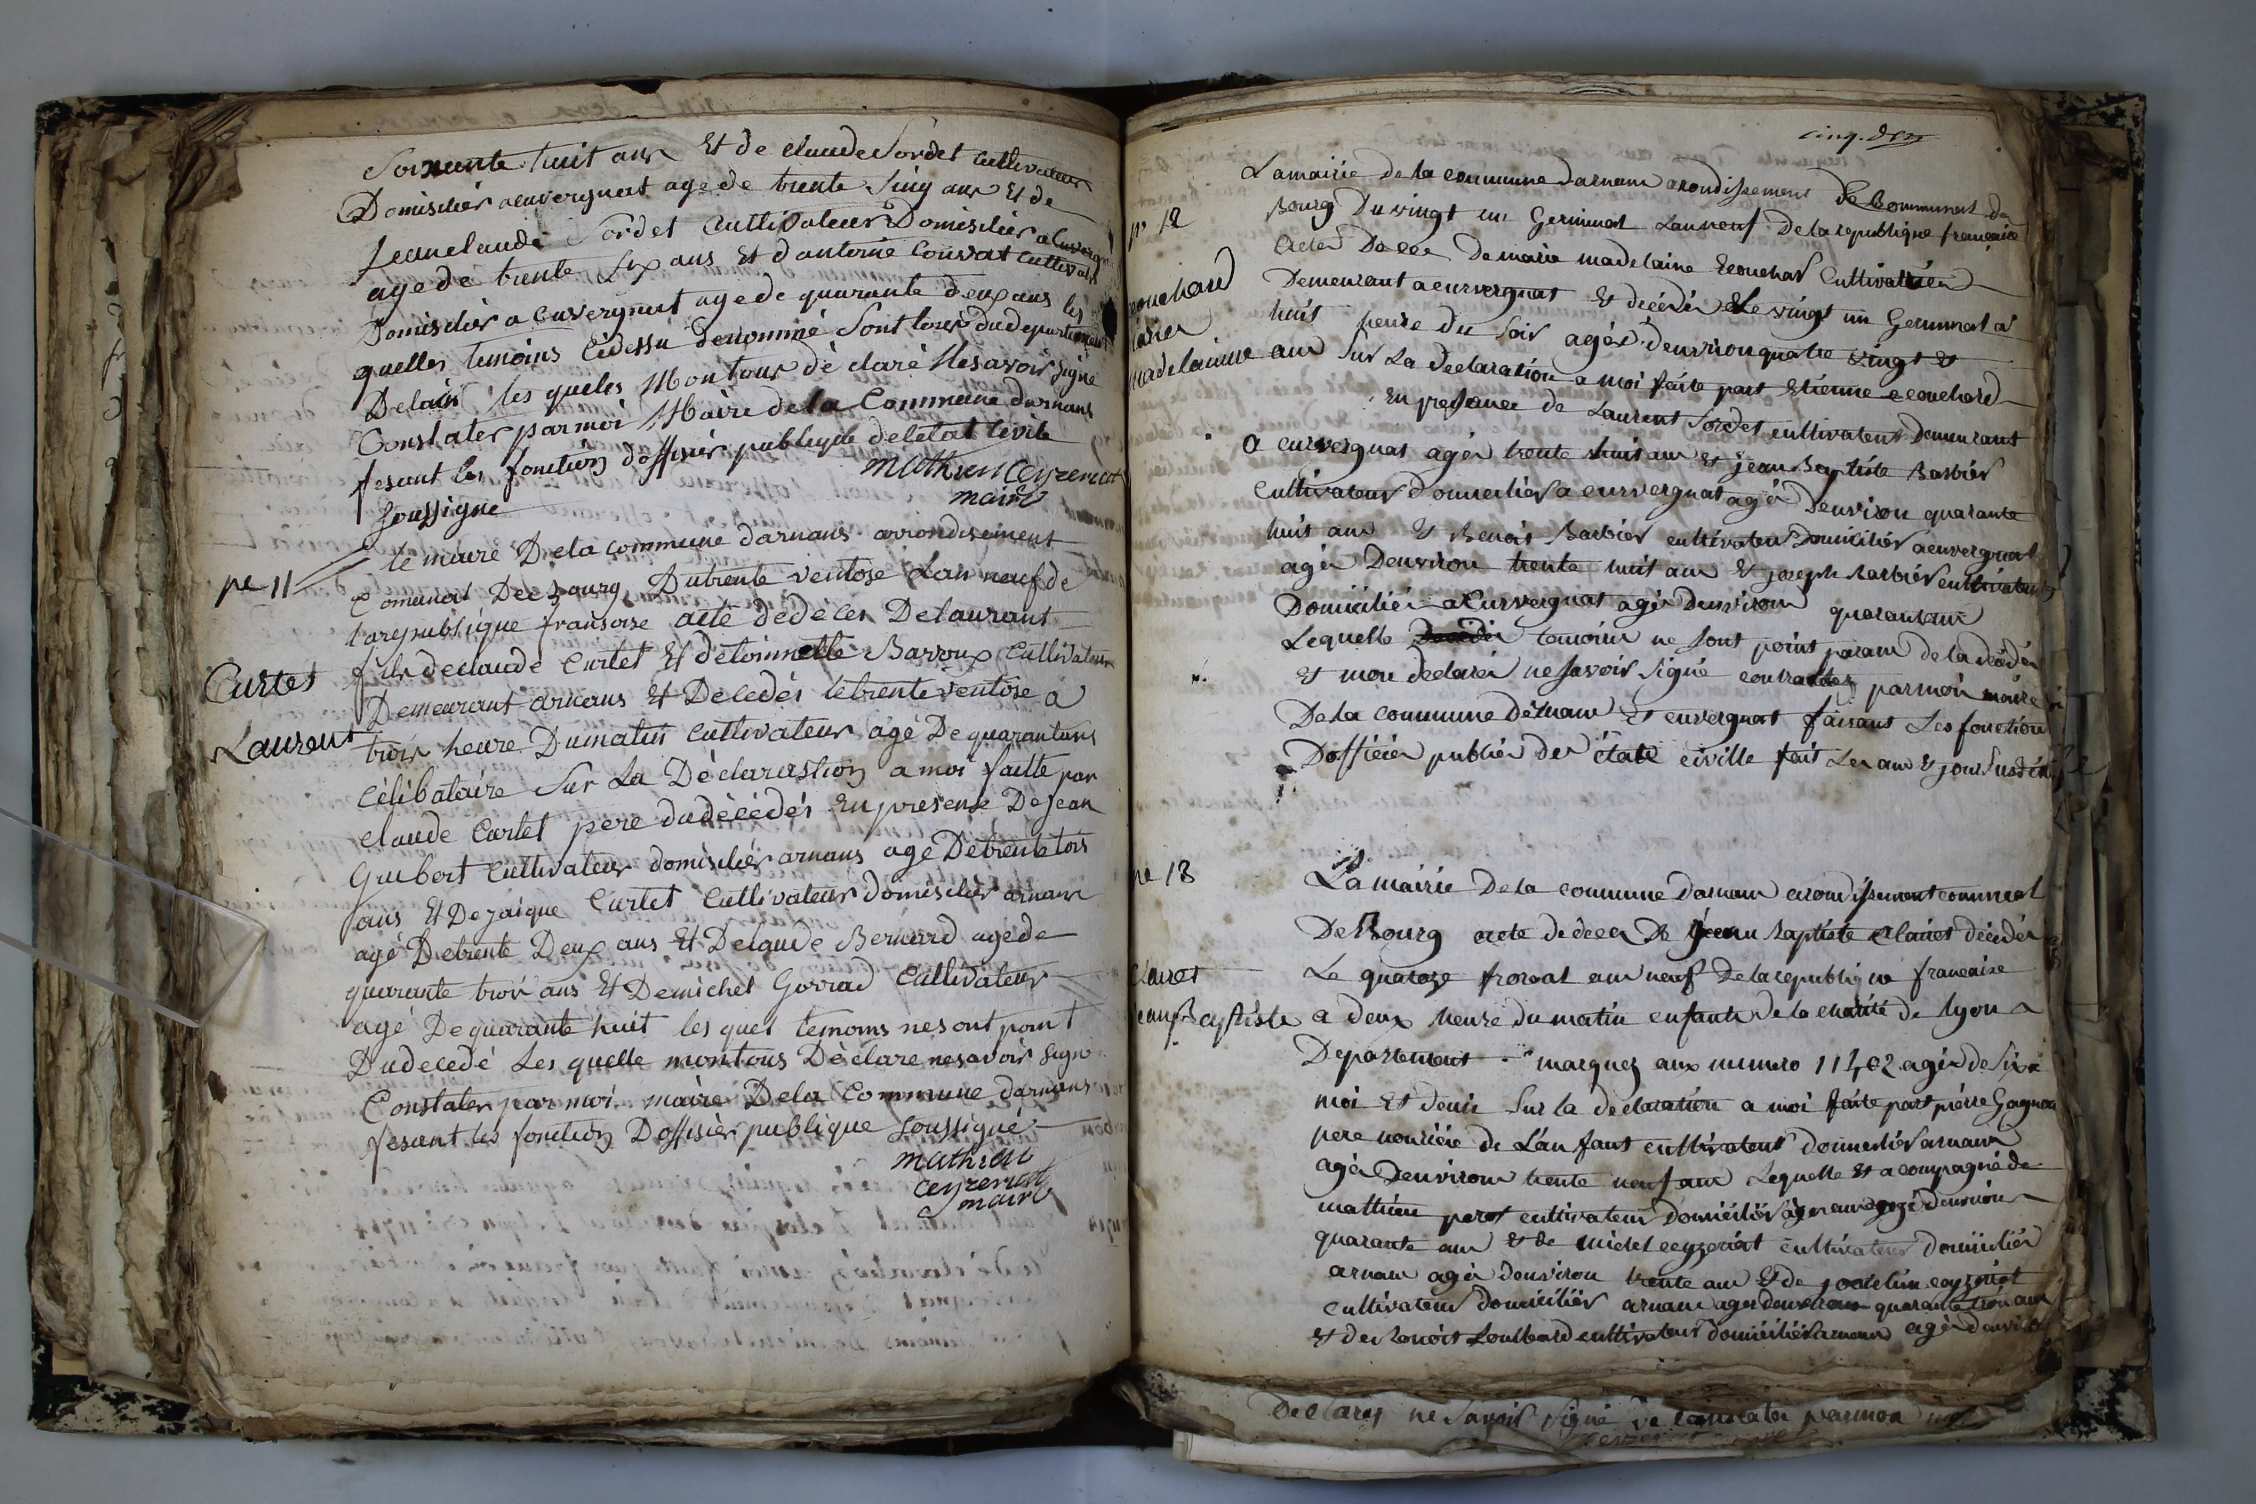 Soixante huit ans Et de claude Sordet cultivateur
Domisilier a cuvergnat age de trente Sinq ans Et de
Jean claude Sordet cultivateur Domisilier a Cuvergn
age de trente Six ans Et d'antoine Couvat cultivat
Domisilier a cuvergnat age de quarante deux ans les
quelles temoins Cidessu denommé Sont tous du departement
Delain les queles Mon tous dé claré Nesavoir signé
Constater par moi Maire de la Commune darnans
fesant les fonction doffisier publique deletat Civile
Soussigne
mathieu Ceyzeriat
maire
ne 11
le maire De la commune darnans arrondisement
Comunal De Bourg Du trente ventose Lan neuf de
larepublique fransoise acte dedeces De laurant
Curtet
fils declaude Curtet Et detoinnette Barroux Cultivateur
Demeurant arnans Et Decedés le trente ventose a
Laurent
trois heure Dumatin Cultivateur agé De quarant ans
Célibataire Sur La Déclarastion a moi faitte par
claude Curtet pere dudécédés En presense De jean
Guibert Cultivateur domisiliér arnans agé De trente tois
ans Et De jaique Curtet Cultivateur domisilier arnans
agé De trente Deux ans Et De laude Bernard agé de
quarante troi ans Et De michel Gorrad Cultivateur
agé De quarante huit les quel temoins nesont point
Dudecedé Les quelle montous Déclare nesavoir signé
Constater par moi maire De la Commune darnans
fesant les fonction Doffisier publique Soussigné
mathieu
Ceyzeriat
maire
cinq. deux
La mairie de la commune Darnans arondissement De Communal De
n° 12
Bourg Du vingt un Germinal Lan neuf De la republique francaise
Acte Decee De marie madelaine ecouchar Cultivatrice
ecouchard
Demeurant a cuvergnat Et decédé Le vingt un Germinal a
marie
huit heure Du Soir agée d'environ quatre vingt et
madelainne
ans Sur La Declaration a moi faite part Etienne ecouchard
En presance de Laurent Sordet cultivateur Demeurant
a cuvergnat agé trente huit ans Et jean Baptiste Barbier
Cultivateur domicilier a cuvergnat agé Denviron quarante
huit ans Et Benoit Barbier cultivateur Domicilier a cuvergnat
agé Denviron trente huit ans Et joseph Barbier cultivateur
Domicilié a Cuvergnat agé Denviron quarant ans
Lequelle temoins ne Sont point parans de la décédée
Et mon declaré ne Savoir Signé constater par moi maire
De la commune Darnans Et cuvergnat faisant Les fonction
Dofficier publier de état civille fait Les an Et jour Susdit
ne 13
La mairie De la commune Darnans arondissement communal
De Bourg acte de dece De jean Baptiste Clairet décédé
Clairet
Le quatoze froreal ans neuf De la republique francaise
jean Baptiste
a deux heure du matin enfant de la charité de lyon
Departement marquez aux numero 11402 agé de Six
moi Et demi Sur la declaration a moi faite part piérre Gagneu
pere nouricié de L'an fant cultivateur domicilier arnans
agé Denviron trente neuf ans Lequelle Et acompagné de
mathieu perot cultivateur Domicilier arnans agé denviron
quarante ans Et de michel ceyzeriat cultivateur domicilier
arnans agé denviron trente ans Et de joselin ceyzeriat
cultivateur domicilier arnans agé denviron quarante trois ans
Et de Benoit Loubard cultivateur domicilier arnans agé denviron
Declarez ne Savoir Signé de constater par moi